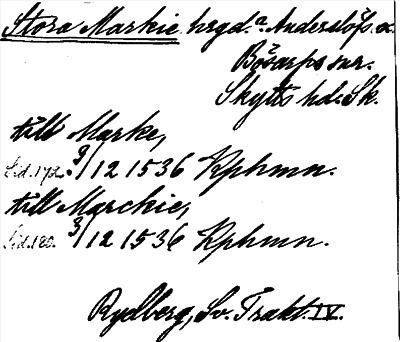 Stora Markie hrgd. a. Anderslöfs o.
Bösarps snr.
Skytts hd. Sk.
till Marke,
Sid. 172. 9/12 1536 Kphmn.
till Marckie,
Sid. 180. 3/12 1536 Kphmn.
Rydberg, Sv. Trakt. IV.